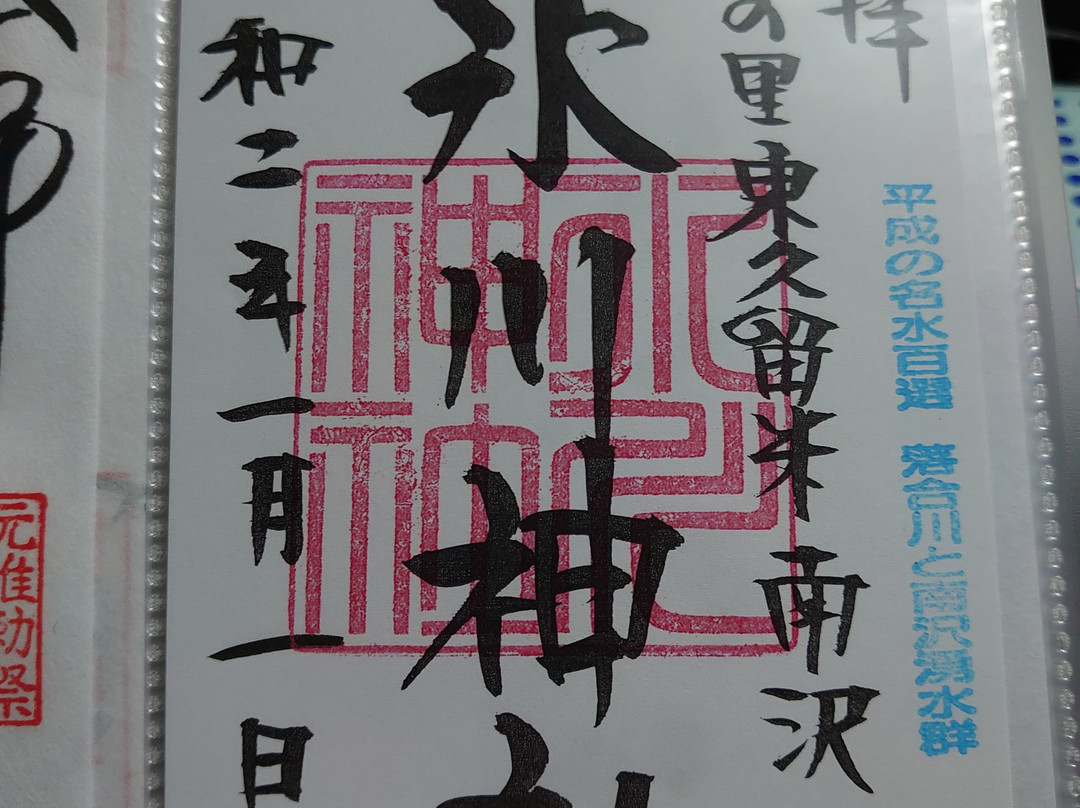 平成の名水百選 落合川と南沢湧水群
拝
の里 東久留米 南沢
氷川神
和二年一月一日
元准勅祭